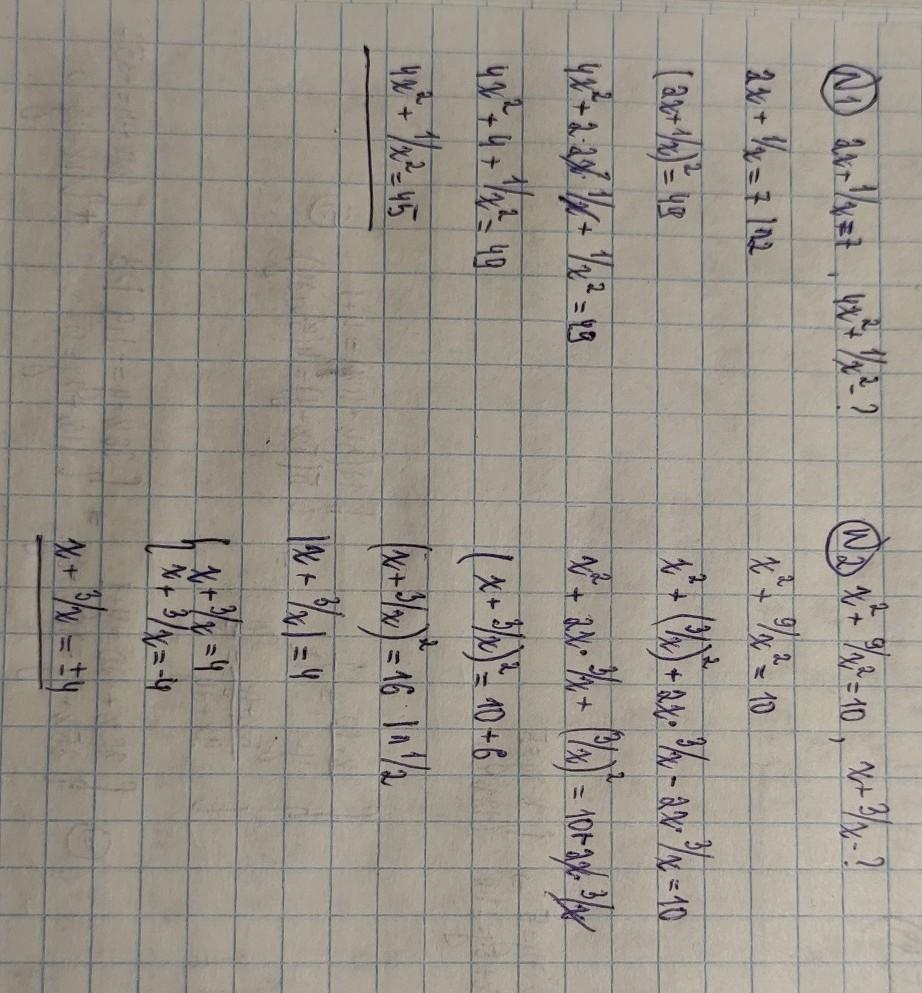 N1 2x+1/x=7, 4x²+1/x²-?
2x+1/x=7 |^2
(2x+1/x)²=49
4x²+2·2x·1/x+1/x²=49
4x²+4+1/x²=49
4x²+1/x²=45
N2 x²+9/x²=10, x+3/x-?
x²+9/x²=10
x²+(3/x)²+2x·3/x-2x·3/x=10
x²+2x·3/x+(3/x)²=10+2x·3/x
(x+3/x)²=10+6
(x+3/x)²=16 |^1/2
|x+3/x|=4
[x+3/x=4
[x+3/x=-4
x+3/x=±4